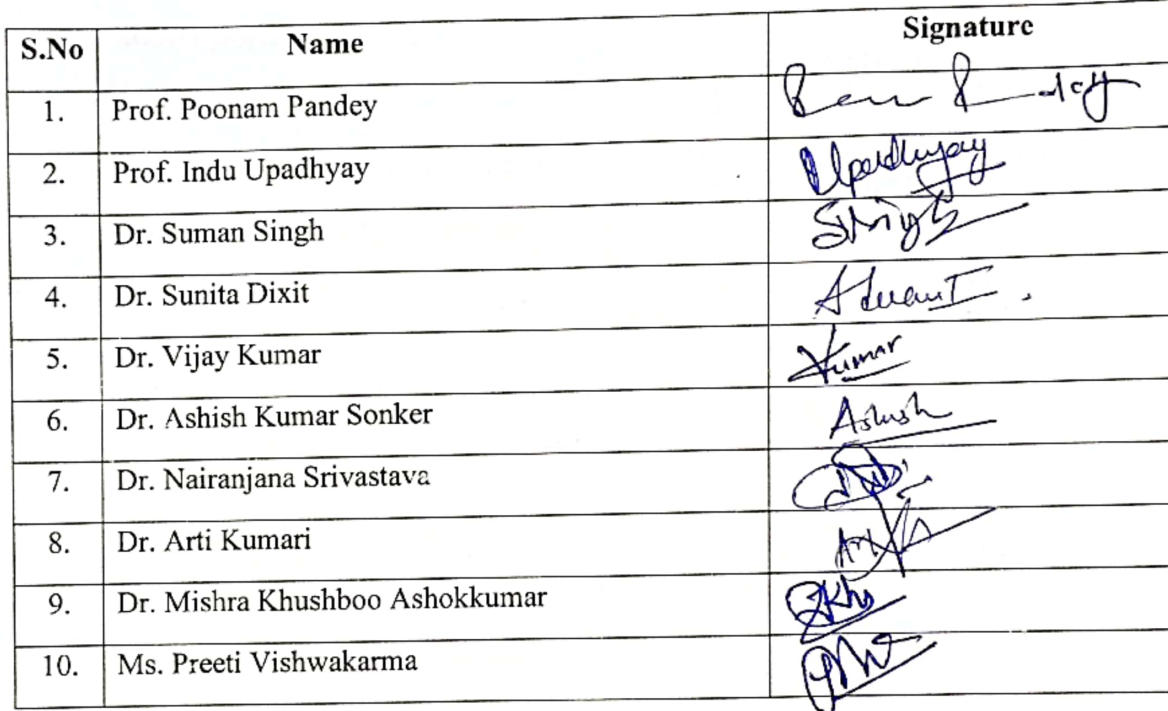 S.No Name Signature
1. Prof. Poonam Pandey
2. Prof. Indu Upadhyay Upadhyay
3. Dr. Suman Singh Singh
4. Dr. Sunita Dixit
5. Dr. Vijay Kumar Kumar
6. Dr. Ashish Kumar Sonker Ashish
7. Dr. Nairanjana Srivastava
8. Dr. Arti Kumari
9. Dr. Mishra Khushboo Ashokkumar
10. Ms. Preeti Vishwakarma